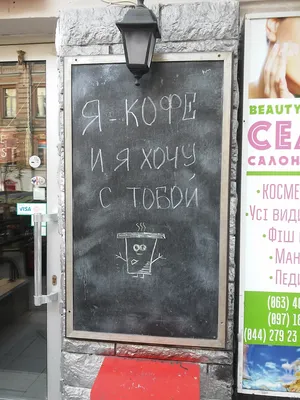 Я - КОФЕ
И Я ХОЧУ
С ТОБОЙ
VISA
BEAUTY
САЛОН
КОСМЕ
УСІ ВИД
ФІШ
МАН
ПЕДИ
(863) 4
(897) 16
(844) 279 23